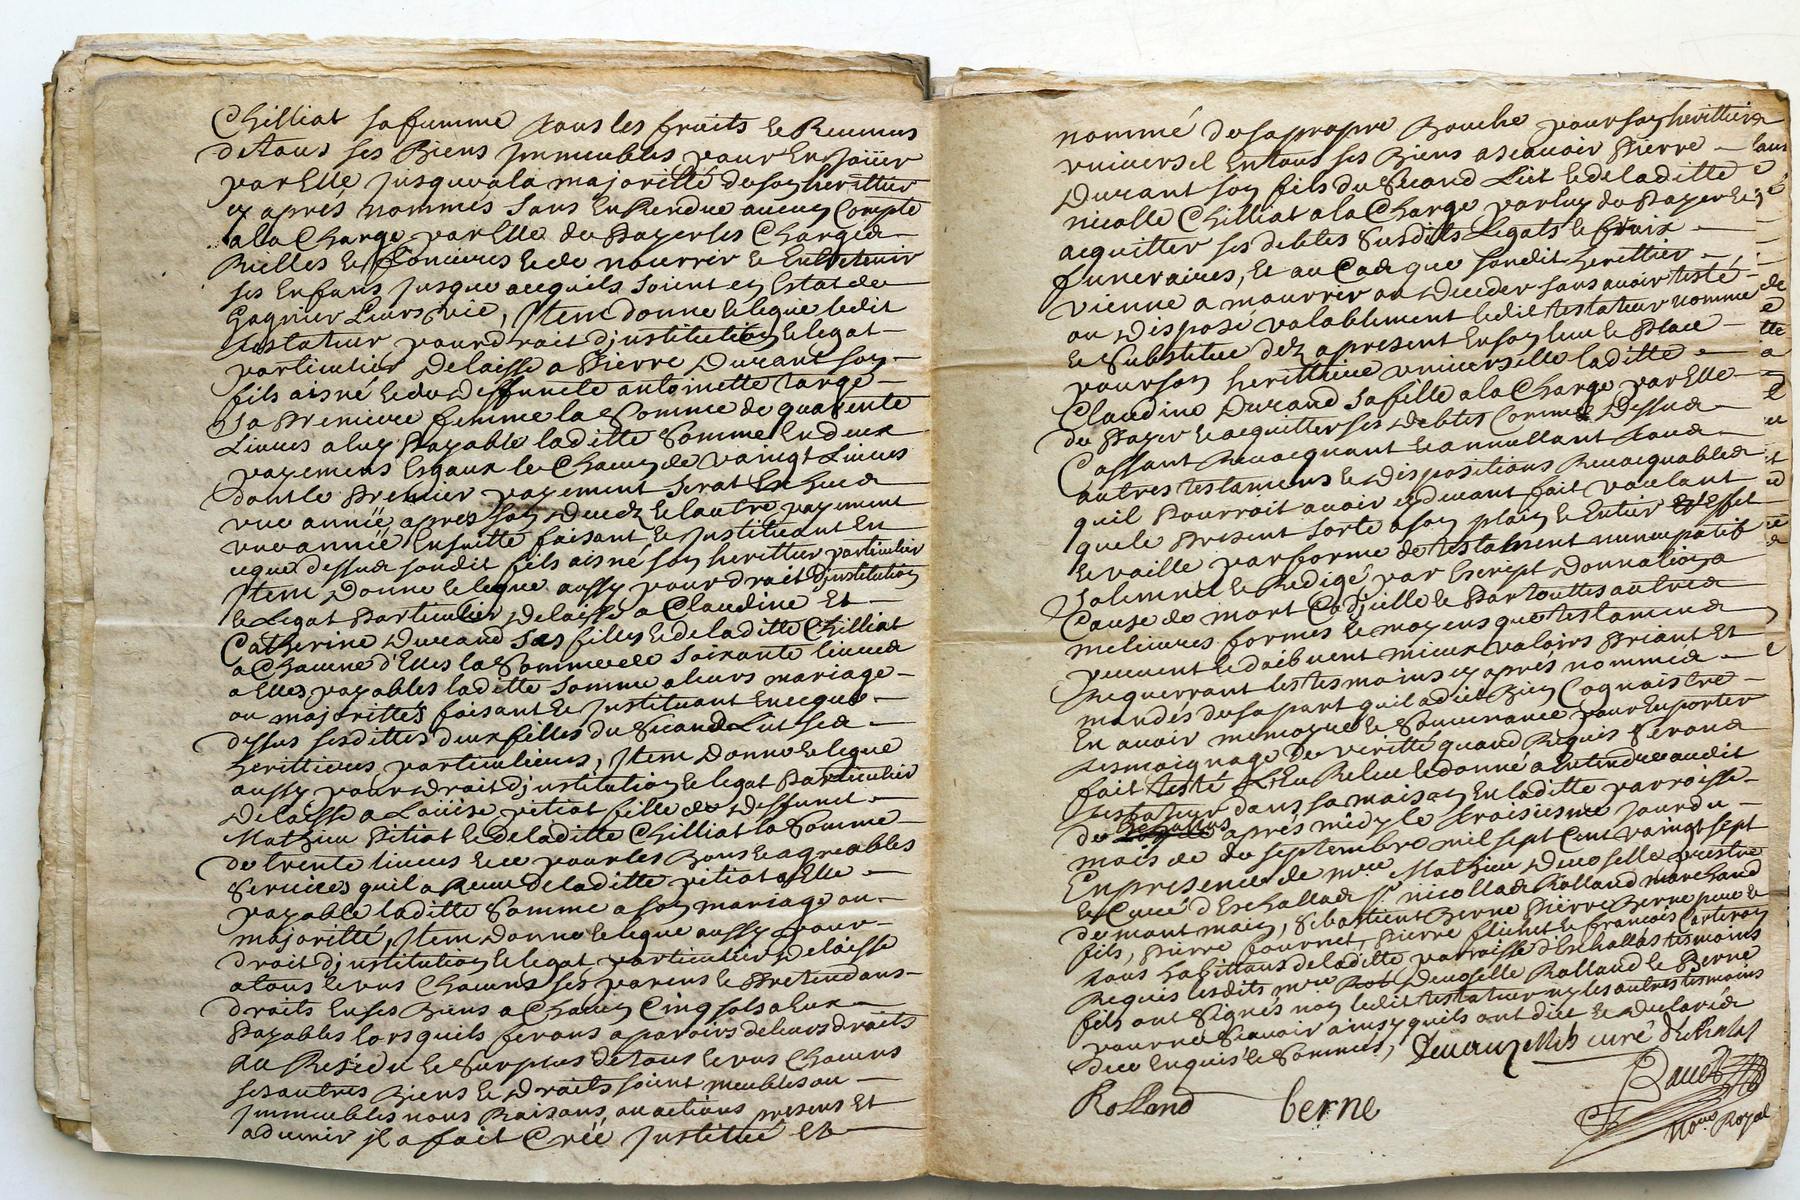 Chilliat sa femme tous les fruits et Revenus
de tous ses Biens Jmmeubles pour En Joüir
par Elle Jusqua la majoritté de son herittier
cy aprés nommés sans En Rendre aucun Compte
a la Charge par Elle de Payer ses Charges
Rielles et foncieres et de nourrir et Entretenir
ses Enfans Jusque acequils soient en Estat de
Gagnier Leurs vie, Jtem donne et legue ledit
testateur pour droit djnstitution et legat
particulier Delaisse a Pierre Durant son
fils aisné et de deffuncte antoinette large
sa Premiere femme la Somme de quarente
Livres a luy Payable laditte Somme En deux
payemens Esgaux le Chacun de vaingt Livres
dont le Premier payement serat Escheu
vne année apres son Decedz et lautre payement
vne année Ensuitte faisant et Jnstituant En
ceque dessus sondit fils aisné son herittier particulier
Jtem Donne et legue aussy pour droit djnstitution
et Legat Particulier Delaisse a Claudine Et
Catherine Durand ses filles et de laditte Chilliat
a Chacune d'Elles la Somme de soixante livres
a Elles payables laditte somme a leurs mariage
ou majorittés faisant et Jnstituant Enceque
dessus sesdittes deux filles du Second Lict ses
herittieres particulieres, Jtem Donne et legue
aussy pour Droit djnstitution et legat Particulier
Delaisse a Loüise pitiot fille de Deffunct
Mathieu Pitiot et de laditte Chilliat la Somme
de trente livres et ce pour les Bons et agreables
Services quil a Receu de laditte pitiot a Elle
payable laditte Somme a son mariage ou
majoritté, Jtem Donne et legue aussy pour
droit djnstitution et legat particulier Delaisse
a tous et vns Chacuns ses parens et Pretendans
droits En ses Biens a Chacun Cinq sols a Eux
Payables lorsquils ferons aparoirs de leurs droits
Au Residu et Surplus de tous et vns Chacuns
ses autres Biens et Droits soient meubles ou
Jmmeubles noms Raisons, ou actions presens Et
aduenir jl a fait Créé Jnstitué Et
nommé de sa propre Bouche pour son herittier
vniuersel En tous ses Biens ascauoir Pierre
Durant son fils du Second Lict et de laditte
nicolle Chilliat a la Charge par luy de Payer Et
acquitter ses debtes Susdits Legats et fraix
funeraires, Et au Cas que sondit herittier
vienne a mourrir ou Deceder sans auoir testé
ou Disposé valablement ledit testateur nomme
et Substitue dez apresent En son lieu et Place
pour son herittiere vniuerselle laditte
Claudine Durand sa fille a la Charge par Elle
de Payer et acquitter ses debtes Comme Dessus
Cassant Reuocquant et annullant tous
autres testamens et dispositions Reuocquables
quil Pourroit auoir cy deuant fait voulant
que le Present sorte a son plain et Entier effet
et vaille par forme de testament nuncupatif
solemnel et Redigé par Escript Donnation a
Cause de mort Codjcille et Par touttes autres
melieures formes et moyens que testamens
peuuent et doibuent mieux valoirs Priant Et
Requerrant les tesmoins cy aprés nommés
mandés de sa part quil a dict Bien Cognoistre
En auoir memoyre et Souuenance pour En porter
tesmoignage De verité quand Requis Serons
fait testé Leu Releu et donné a Entendre audit
testateur dans sa maison En laditte parroisse
de aprés midy le troisiesme Jour du
mois de de septembre mil sept cent vaingt sept
En presence de mre Mathieu Deuoselle prestre
et Curé d'Eschallas sr nicollas Rolland marchand
Sebastient Berne Pierre Berne pour le
fils, Pierre fournet, Pierre flichet et francois Carteron
tous habittans de laditte parroisse d'Eschallas tesmoins
Requis lesdits mre Deuoselle Rolland et Berne
fils ont Signés non ledit testateur ny les autres tesmoins
pour ne Scauoir ainsy quils ont dict et declarés
Dece Enquis et Sommés,
curé
Rolland berne
Royal